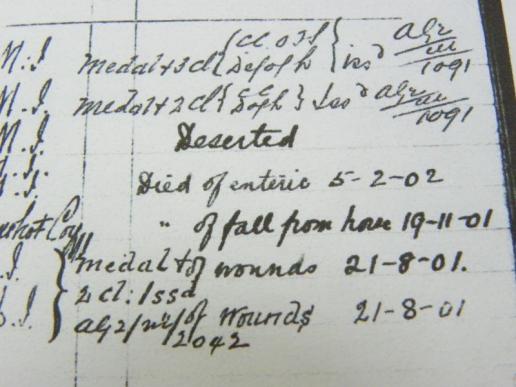 M.I. Medal + 3 cl { CC OFS Def of L'h } iss'd AG2/ 1091
M.I. Medal + 2 cl { CC } Iss'd AG2/ 1091
M.I. Deserted
Died of enteric 5-2-02
" of fall from horse 19-11-01
Medal + of wounds 21-8-01.
2 cl: Issd
AG2/ of wounds 21-8-01
2042